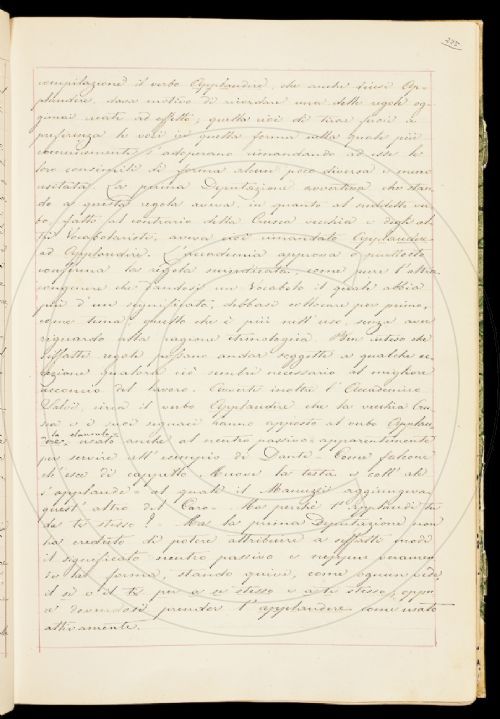 325
compilazione il verbo Applaudire, che anche dicesi Ap-
plaudere, dava motivo di ricordare una delle regole og-
gimai recate ad effetto; quella cioè di tirar fuori a
preferenza le voci in quella forma nella quale più
comunemente s'adoperano rimandando ad esse le
loro consimili di forma alcun poco diversa e meno
usitata. La prima Deputazione avvertiva che stan-
do a questa regola aveva in quanto al suddetto ver-
bo, fatto al contrario della Crusca vecchia e degli al-
tri Vocabolaristi, aveva cioè rimandato Applaudere
ad Applaudire. L'Accademia approva e piuttosto
conferma la regola surriferita, come pure l'altra
congenere che dandosi un Vocabolo il quale abbia
più d'un significato, debbasi collocare per primo,
come tema, quello che è più nell'uso, senza aver
riguardo alla ragione etimologica. Ben inteso che
siffatte regole possano andar soggette a qualche ec-
cezione qualora ciò sembri necessario al migliore
acconcio del lavoro. Avvertì inoltre l'Accademico
circa il verbo Applaudire che la vecchia Cru-
sca e i suoi seguaci hanno apposto al verbo Applau-
dire, usato anche al neutro passivo apparentemente
per servire all'esempio di Dante - Come falcone
ch'esce di cappello, Muove la testa e coll'ali
s'applaude - al quale il Manuzzi aggiungeva
quest'altro del Caro - Ma perchè l'applaudi tu
da te stesso? - Ma la prima Deputazione non
ha creduto di potere attribuire a siffatti modi
il significato neutro passivo e neppur veramen-
te la forma, stando quivi, come ognun vede
il si o il ti per a se stesso e a te stesso, oppu-
a dovendosi prender l'applaudire come usato
attivamente.